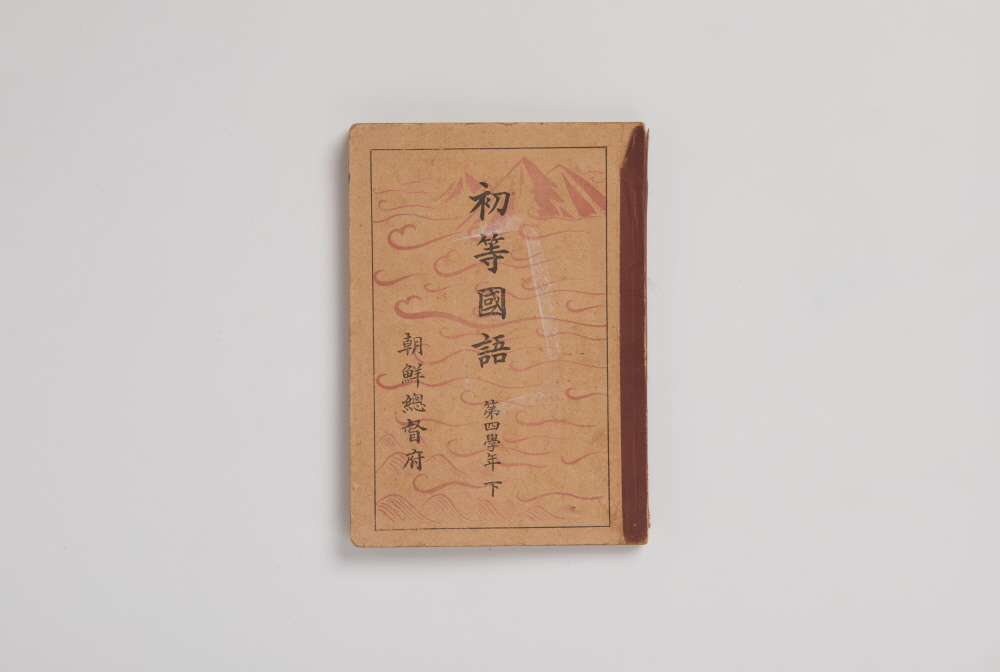 初等國語 第四學年 下
朝鮮總督府